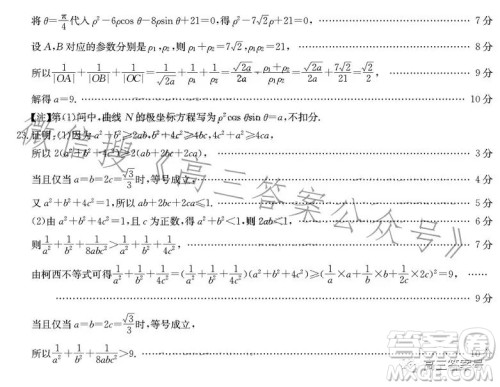 将θ=π/4代入ρ²-6ρcos θ-8ρsin θ+21=0,得ρ²-7√2ρ+21=0, 7分
设A,B对应的参数分别是ρ₁,ρ₂,则ρ₁+ρ₂=7√2,ρ₁ρ₂=21, 8分
所以1/|OA|+1/|OB|+1/|OC|=1/√(2a)+1/ρ₁+1/ρ₂=√(2a)/(2a)+(ρ₁+ρ₂)/(ρ₁ρ₂)=√(2a)/(2a)+7√2/21=√2/2, 9分
解得a=9. 10分
【注】第(1)问中,曲线N的极坐标方程写为ρ²cos θsin θ=a,不扣分.
23.证明:(1)因为a²+b²≥2ab,b²+4c²≥4bc,4c²+a²≥4ca,
所以2(a²+b²+4c²)≥2(ab+2bc+2ca), 3分
当且仅当a=b=2c=√3/3时,等号成立, 4分
又a²+b²+4c²=1,所以ab+2bc+2ac≤1. 5分
(2)由a²+b²+4c²=1,且c为正数,得a²+b²<1, 6分
则1/a²+1/b²+1/(8abc³)> 7分
由柯西不等式可得1/a²+1/b²+1/4c²=(1/a²+1/b²+1/4c²)(a²+b²+4c²)≥(1/a×a+1/b×b+1/2c×2c)²=9,
9分
当且仅当a=b=2c=√3/3时,等号成立.
所以1/a²+1/b²+1/(8abc³)>9.
微信搜《高三答案公众号》
高三答案号